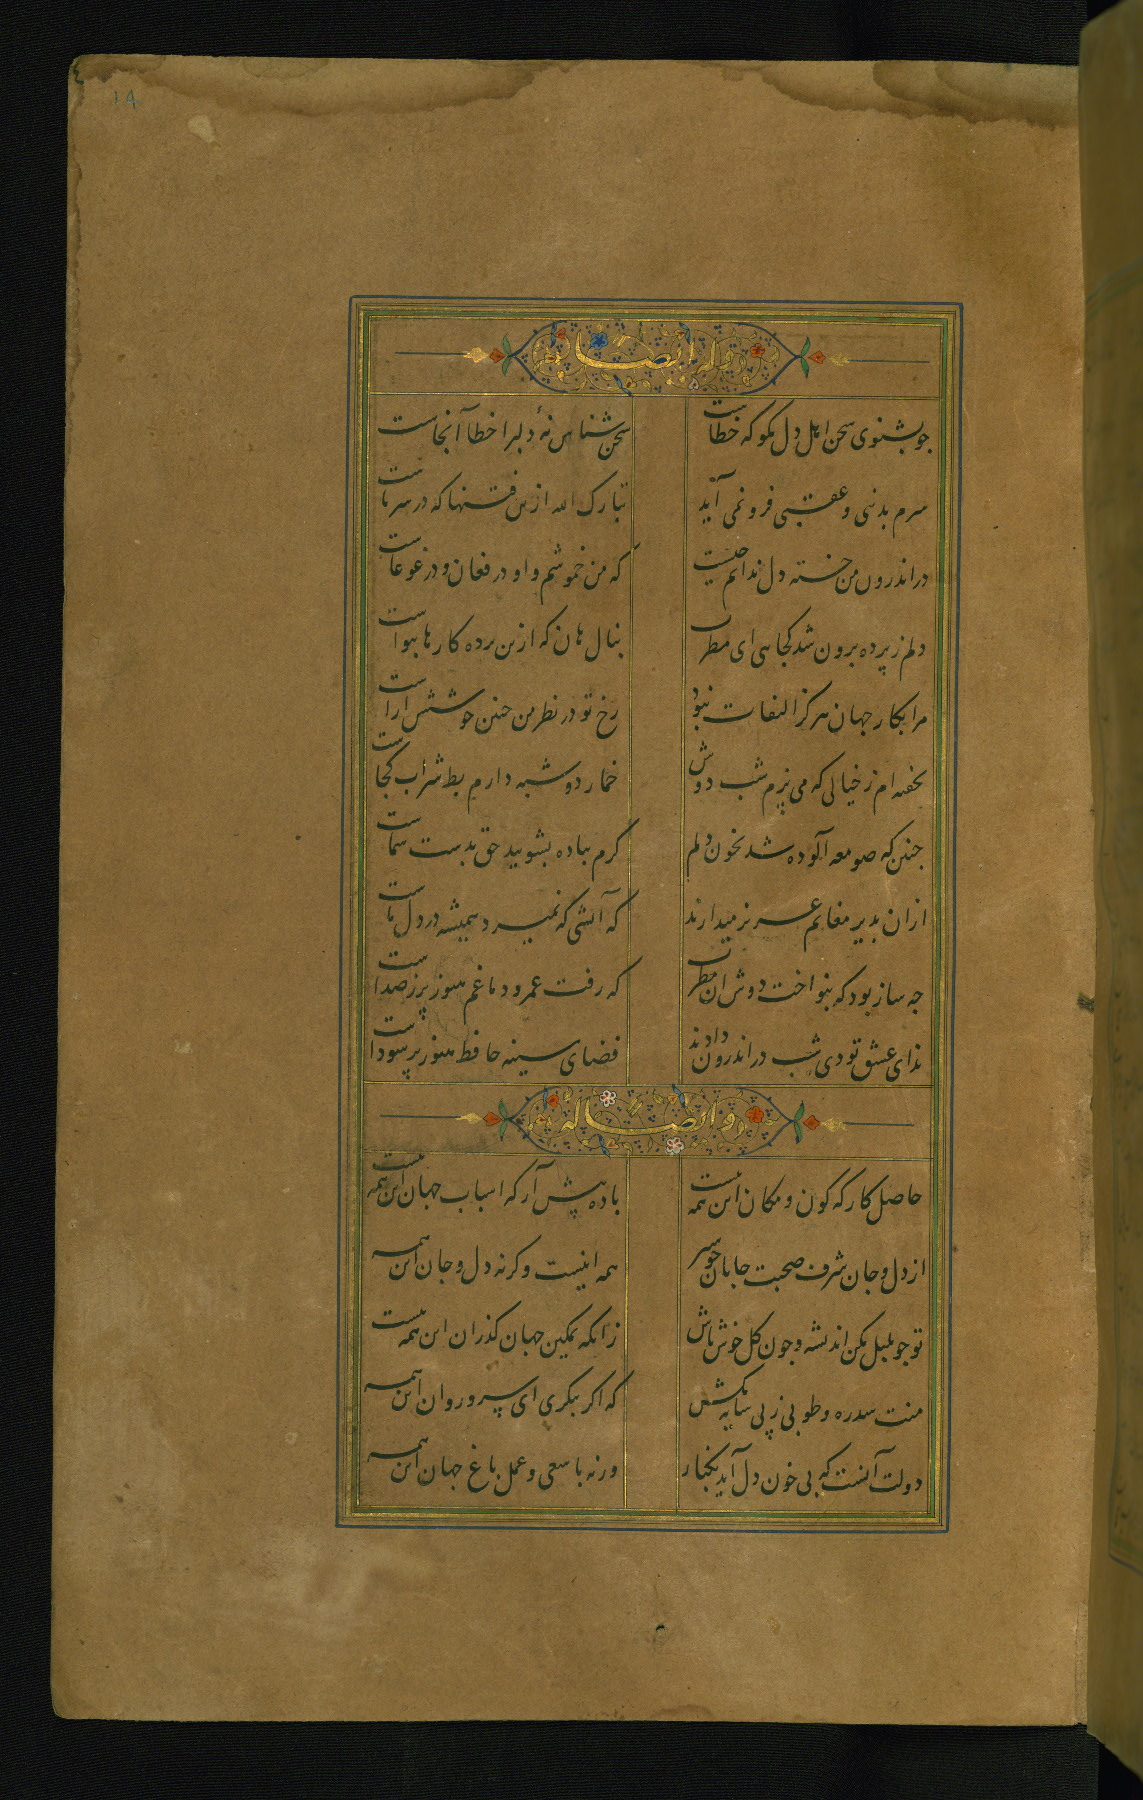 وله ایضا
چو بشنوی سخن اهل دل مکو که خطاست سخن شناس نهٔ دلبرا خطا آنجاست
سرم بدنیی و عقبی فرو نمی آید تبارک الله ازین فتنها که در سر ماست
در اندرون من خسته دل ندانم چیست که من خموشم و او در فغان و در غوغاست
دلم ز پرده برون شد کجایی ای مطرب بنال هان که ازین پرده کار ما بنواست
مرا بکار جهان هرکز التفات نبود رخ تو در نظر من چنین خوشش آراست
نخفته ام ز خیالی که می پزم شب دوش خمار دوشبه دارم بط شراب کجاست
چنین که صومعه آلوده شد بخون دلم کرم بباده بشویید حق بدست شماست
ازان بدیر مغانم عزیز میدارند که آتشی که نمیرد همیشه در دل ماست
چه ساز بود که بنواخت دوش آن مطرب که رفت عمر و دماغم هنوز پرز صداست
ندای عشق تو دی شب در اندرون دادند فضای سینه حافظ هنوز پر سوداست
و ایضا له
حاصل کارکه کون و مکان این همه نیست باده پیش آر که اسباب جهان این همه نیست
از دل و جان شرف صحبت جانان همه اینست وکرنه دل و جان این همه
تو چو بلبل مکن اندیشه و چون کل خوش باش زانکه تمکین جهان کذران این همه نیست
منت سدره و طوبی ز پی سایه مکش که اکر بنکری ای سرو روان این همه
دولت آنست که بی خون دل آید بکنار ورنه با سعی و عمل باغ جهان این همه